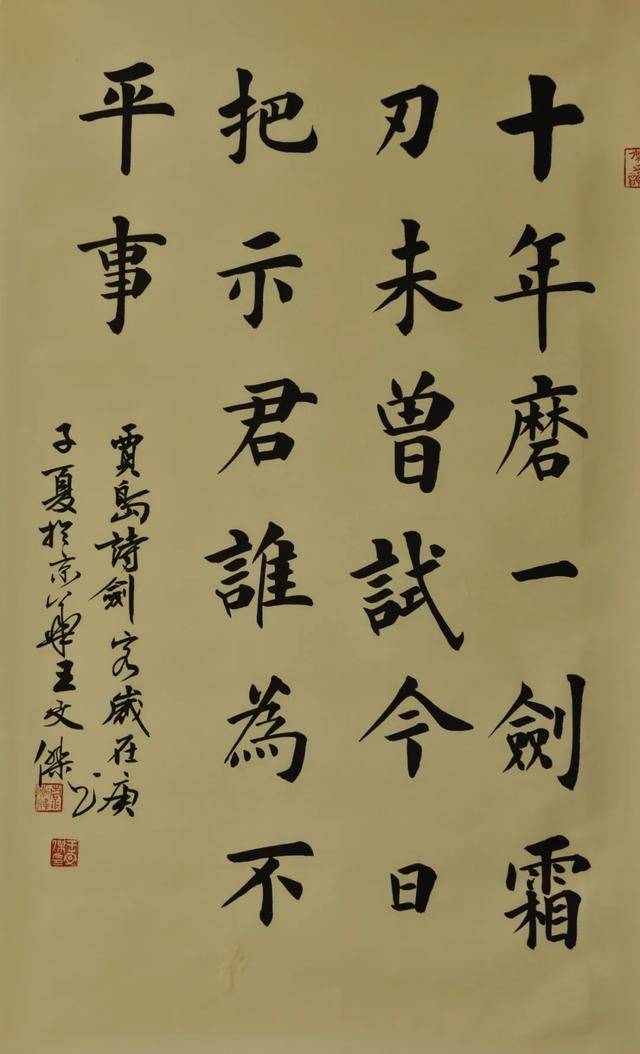 十年磨一劍霜
刃未曾試今日
把示君誰為不
平事
賈島詩劍客歲在庚
子夏於京華王文傑書